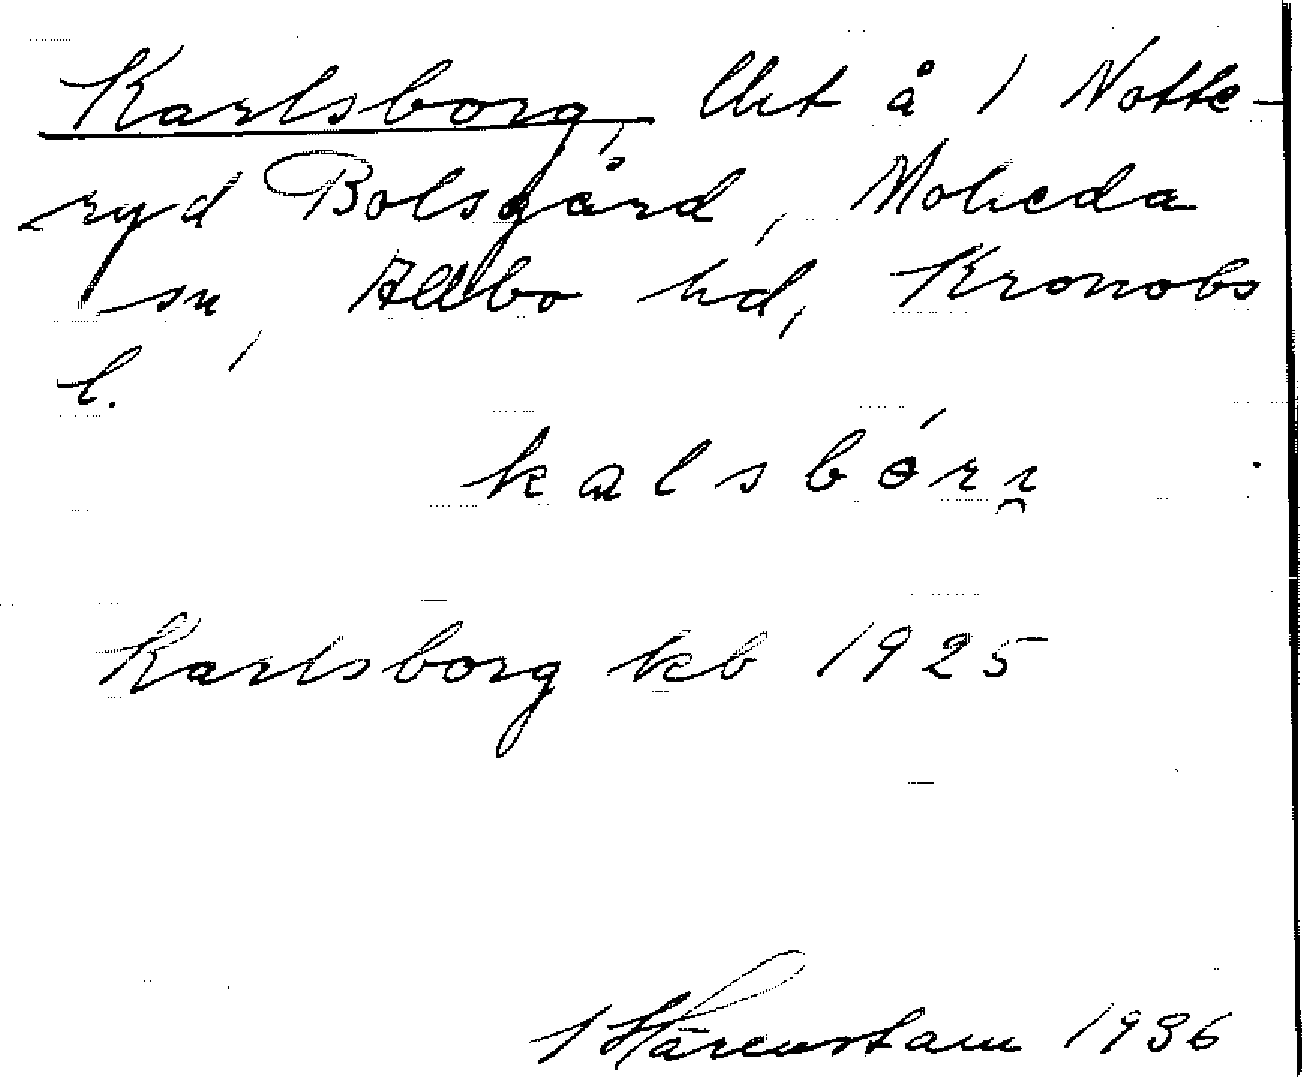 Karlsborg, lht å 1 Notte-
ryd Bolsgård, Moheda
sn, Allbo hd, Kronobs
l.
kalsbórı̯
Karlsborg kb 1925
Härenstam 1936